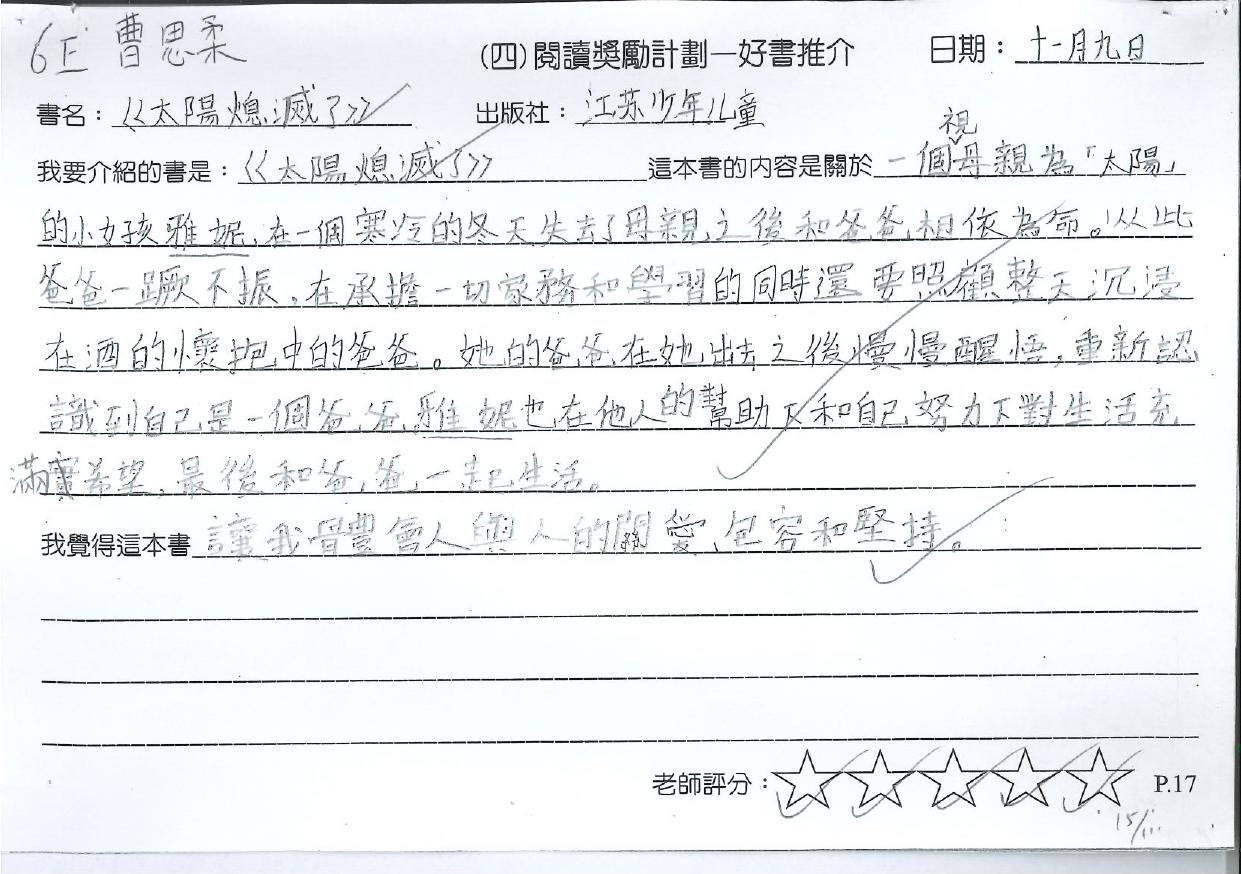 6E 曹思柔
(四)閱讀獎勵計劃—好書推介 日期：十一月九日
書名：《太陽熄滅了》 出版社：江苏少年儿童
視
我要介紹的書是：《太陽熄滅了》 這本書的內容是關於一個母親為「太陽」
的小女孩雅妮,在一個寒冷的冬天失去了母親之後和爸爸相依為命。从此
爸爸一蹶不振,在承擔一切家務和學習的同時還要照顧整天沉浸
在酒的懷抱中的爸爸。她的爸爸在她出去之後慢慢醒悟,重新認
識到自己是一個爸爸,雅妮也在他人的幫助下和自己努力下對生活充
滿希望,最後和爸爸一起生活。
我覺得這本書讓我體會人與人的關愛、包容和堅持。
老師評分：☆☆☆☆☆ P.17